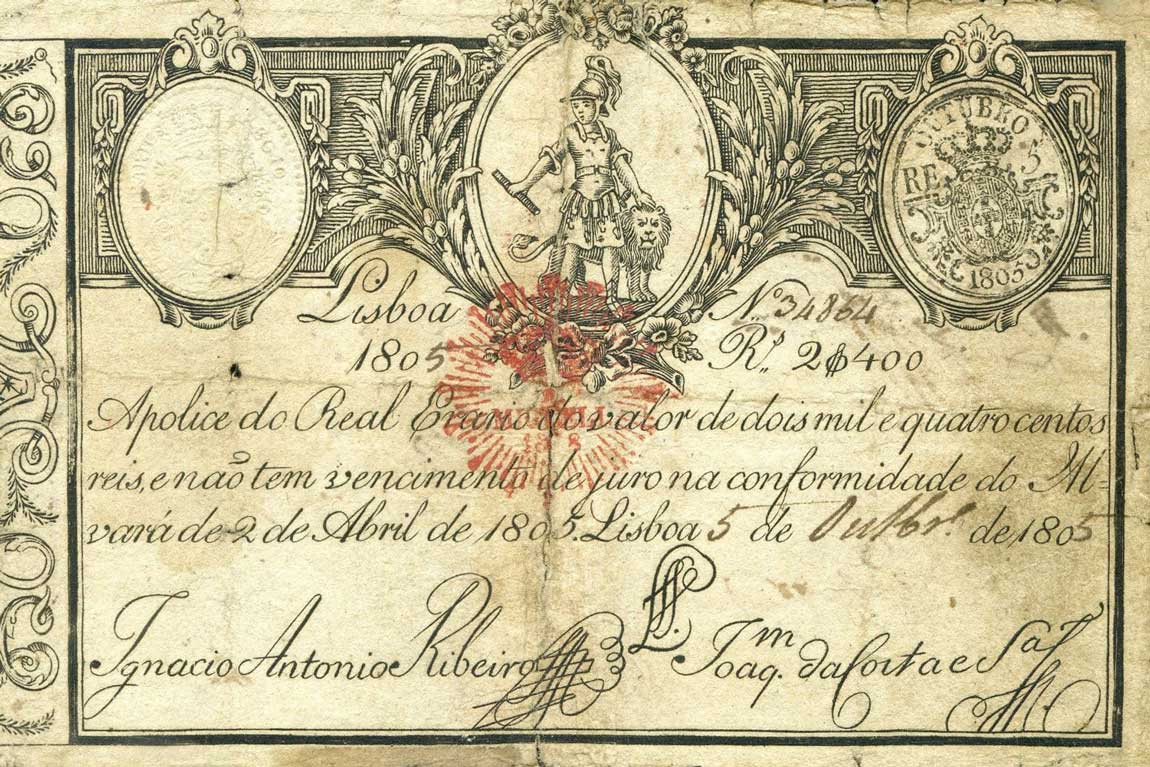 OUTUBRO 5
RE
1805
Lisboa Nº 34864
1805 Rs. 2$400
Apolice do Real Erario do valor de dois mil e quatro centos
reis, e não tem vencimento de juro na conformidade do Al-
vará de 2 de Abril de 1805. Lisboa 5 de Outbr.º de 1805
Ignacio Antonio Ribeiro Joaq.m da Costa e Sa